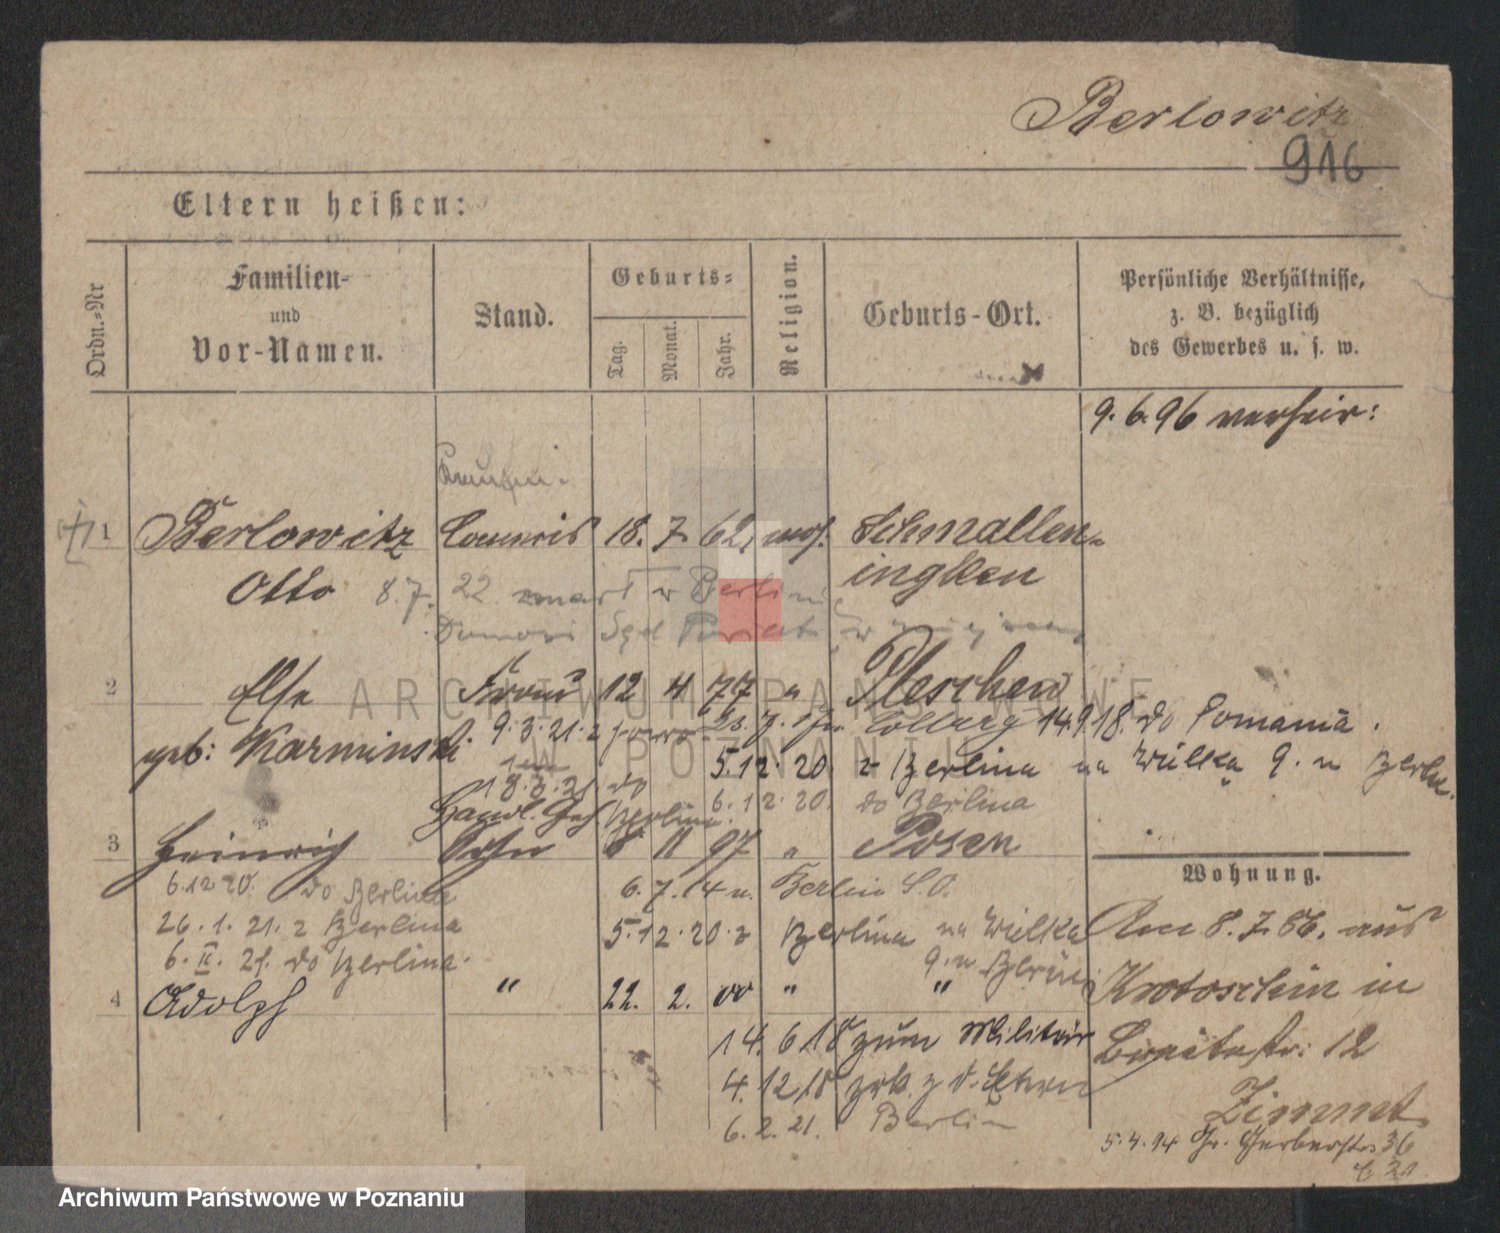 Berlowitz
916
Eltern heißen:
Ordn.-Nr
Familien- und Vor-Namen.
Stand.
Geburts-
Tag. Monat. Jahr.
Religion.
Geburts-Ort.
Persönliche Verhältnisse,
z. B. bezüglich
des Gewerbes u. s. w.
9. 6. 96 verheir:
1 Berlowitz Commis 18. 7. 62. mos. Schmallen-
Otto ingken
8. 7. 22 zmarł w Berlinie
2 Else Frau 12 4 77 " Pleschen
geb: Karminski
9. 3. 21. z
Colberg 14. 9. 18. do Poznania.
5. 12. 20. z Berlina na Wielka 9. u Berlow.
18. 3. 21 do Berlina
6. 12. 20. do Berlina
Handl. Geh
3 Heinrich Sohn 8 11 97 " Posen
6. 12 20. do Berlina
6. 7. 14 n. Berlin S. O.
26. 1. 21. z Berlina
5. 12. 20. z Berlina na Wielka
9. u
6. II. 21. do Berlina.
4 Adolph " 22. 2. 00 " "
14. 6. 18 zum Militär
4. 12 18 zrk. z. d. Eltern
6. 2. 21. Berlin
Wohnung.
Am 8. 7. 86. aus
Krotoschin in
Breitestr: 12
Zimmt
5. 4. 94 Gr. Gerberstr. 36
ARCHIWUM PAŃSTWOWE
W POZNANIU
Archiwum Państwowe w Poznaniu